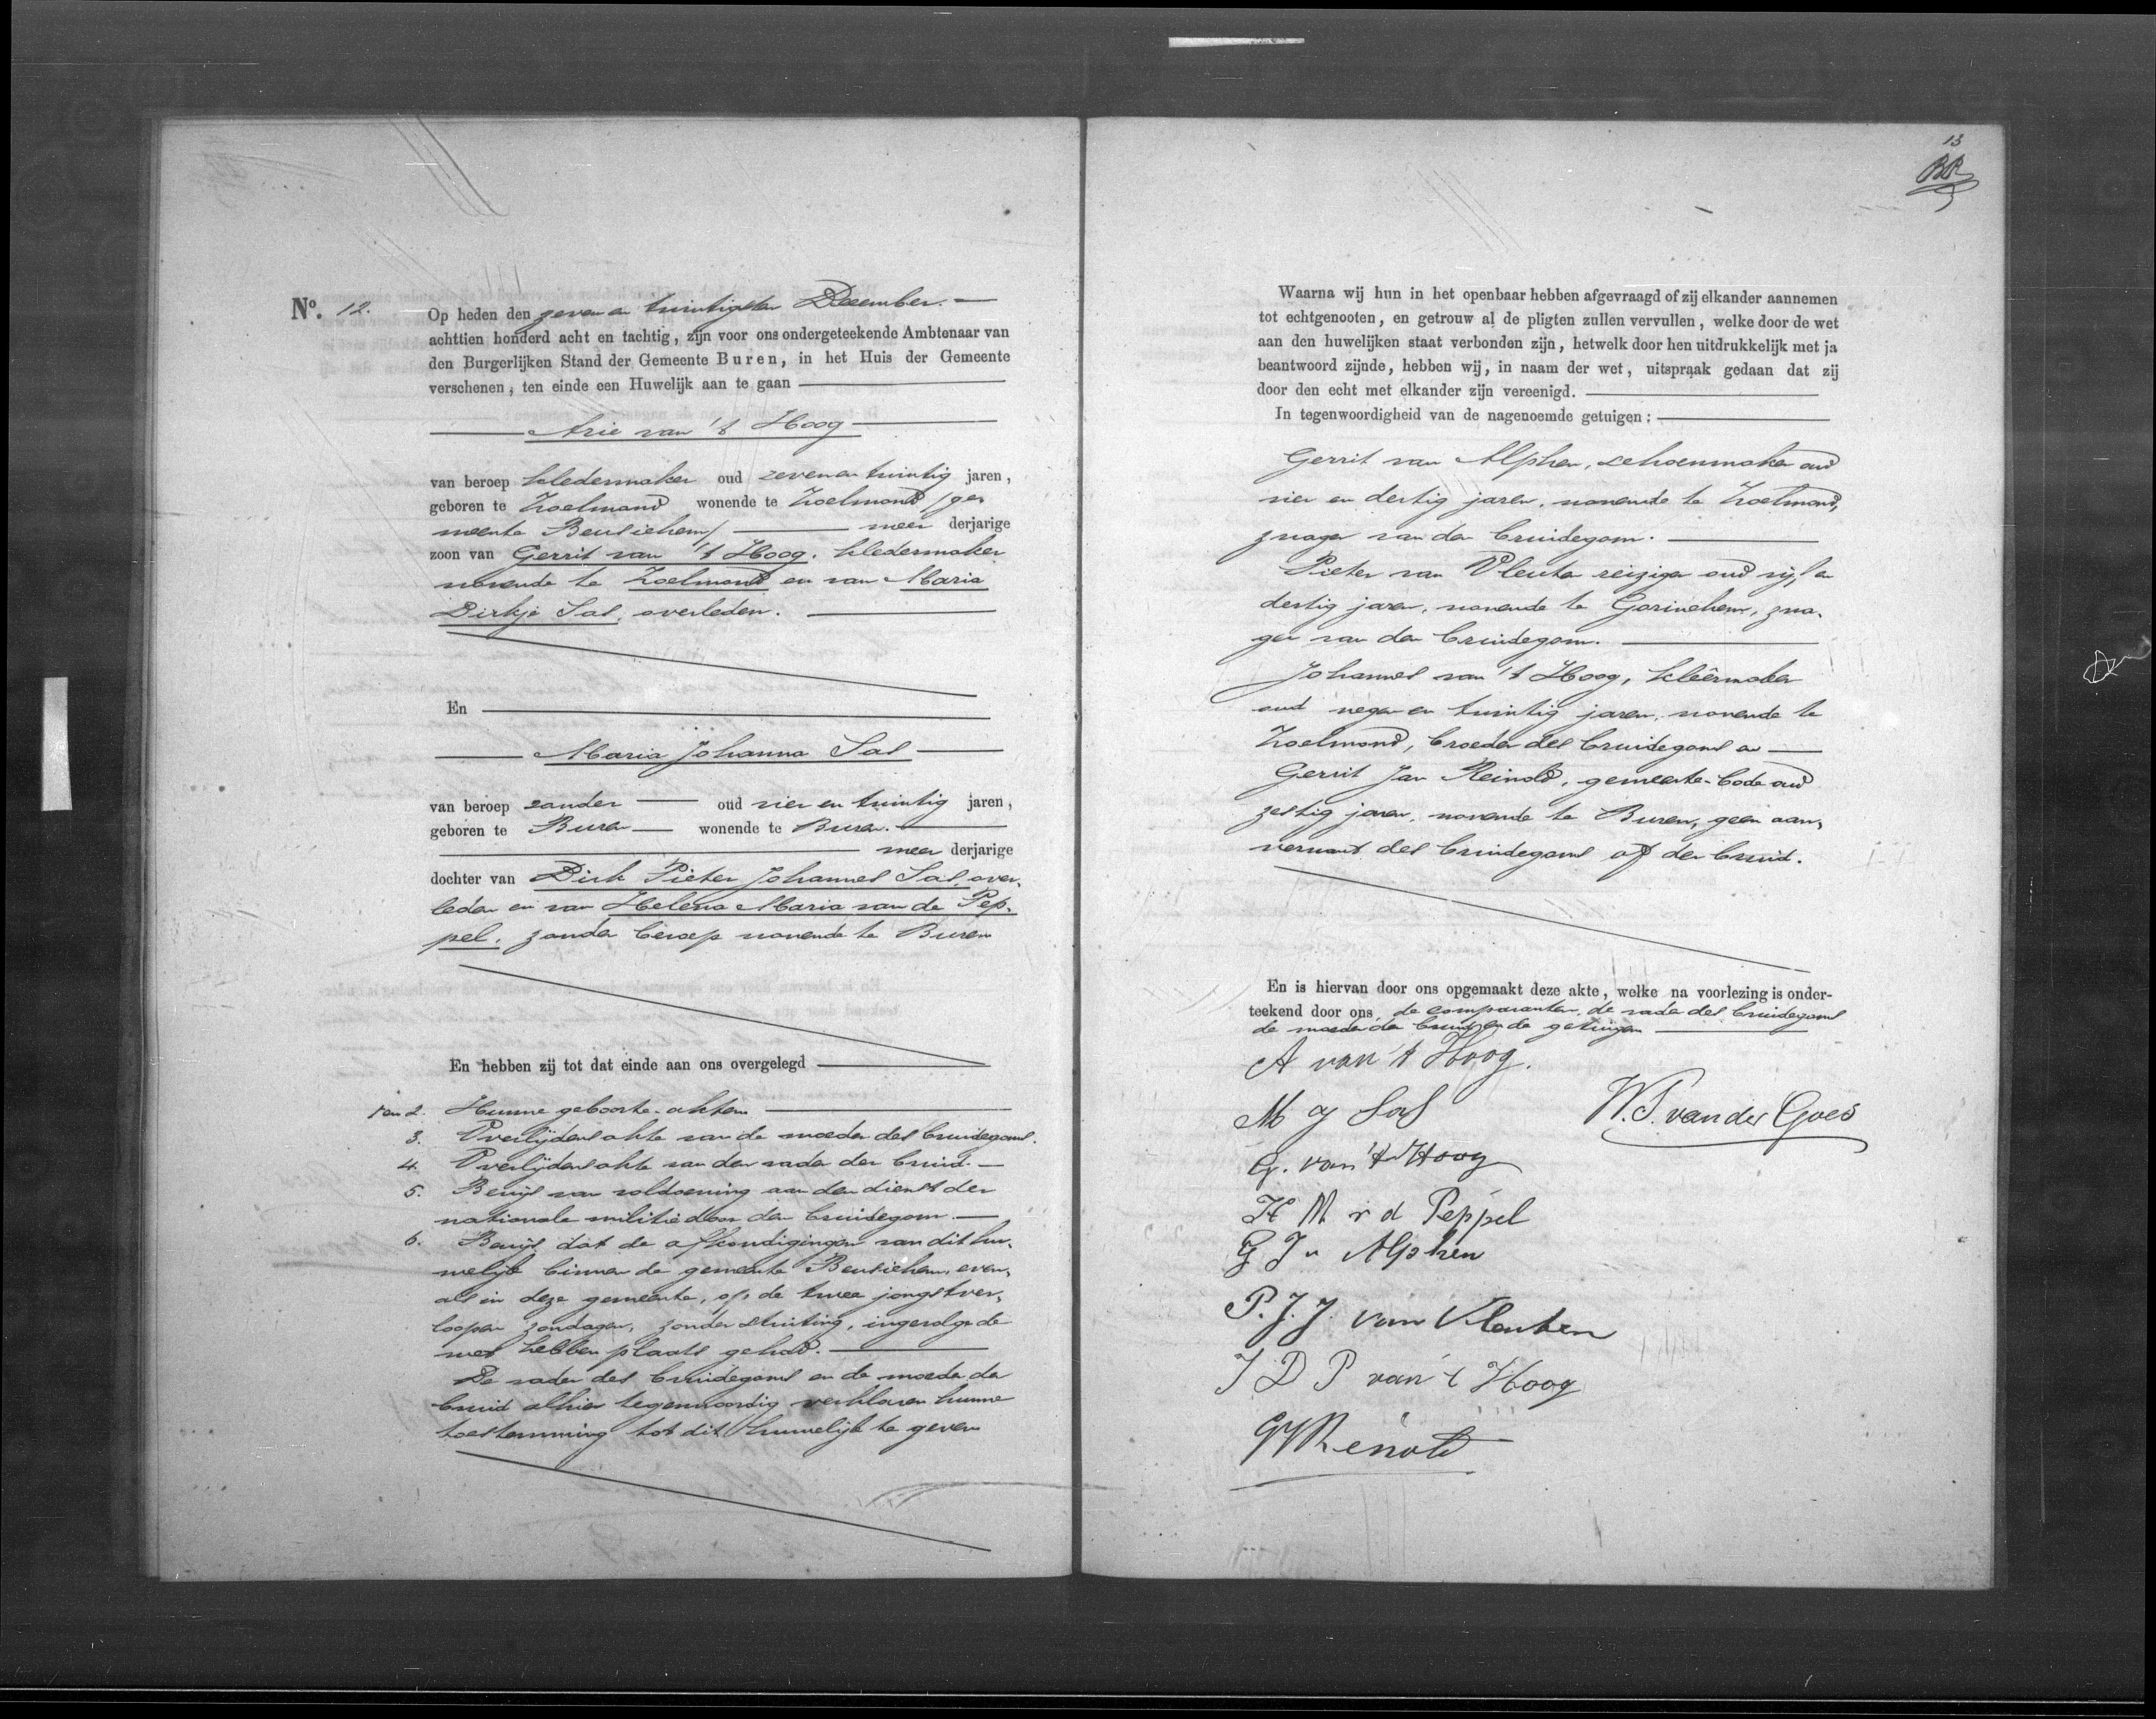 No. 12.
Op heden den zeven en twintigsten December.
achttien honderd acht en tachtig, zijn voor ons ondergeteekende Ambtenaar van
den Burgerlijken Stand der Gemeente Buren, in het Huis der Gemeente
verschenen, ten einde een Huwelijk aan te gaan
Arie van 't Hoog
van beroep kledermaker oud zeven en twintig jaren,
geboren te Zoelmond wonende te Zoelmond /ge-
meente Beusichem/ meer derjarige
zoon van Gerrit van 't Hoog, kledermaker
wonende te Zoelmond en van Maria
Dirkje Sal, overleden.
En
Maria Johanna Sal
van beroep zonder oud vier en twintig jaren,
geboren te Buren wonende te Buren.
meer derjarige
dochter van Dirk Pieter Johannes Sal, over-
leden en van Helena Maria van de Pep-
pel, zonder beroep wonende te Buren
En hebben zij tot dat einde aan ons overgelegd
1 en 2. Hunne geboorte-akten
3. Overlijdensakte van de moeder des bruidegoms.
4. Overlijdensakte van den vader der bruid.
5. Bewijs van voldoening aan den dienst der
nationale militie door den bruidegom.
6. Bewijs dat de afkondigingen van dit hu-
welijk binnen de gemeente Beusichem, even-
als in deze gemeente, op de twee jongstver-
loopen zondagen, zonder stuiting, ingevolge de
wet hebben plaats gehad.
De vader des bruidegoms en de moeder der
bruid alhier tegenwoordig verklaren hunne
toestemming tot dit huwelijk te geven
13
BR
Waarna wij hun in het openbaar hebben afgevraagd of zij elkander aannemen
tot echtgenooten, en getrouw al de pligten zullen vervullen, welke door de wet
aan den huwelijken staat verbonden zijn, hetwelk door hen uitdrukkelijk met ja
beantwoord zijnde, hebben wij, in naam der wet, uitspraak gedaan dat zij
door den echt met elkander zijn vereenigd.
In tegenwoordigheid van de nagenoemde getuigen:
Gerrit van Alphen, schoenmaker oud
vier en dertig jaren, wonende te Zoelmond,
zwager van den bruidegom.
Pieter van Vleuten reiziger oud vijf en
dertig jaren, wonende te Gorinchem, zwa-
ger van den bruidegom.
Johannes van 't Hoog, kleêrmaker
oud negen en twintig jaren, wonende te
Zoelmond, broeder des bruidegoms en
Gerrit Jan Reinold, gemeente-bode oud
zestig jaren, wonende te Buren, geen aan-
verwant des bruidegoms of der bruid.
En is hiervan door ons opgemaakt deze akte, welke na voorlezing is onder-
teekend door ons, de comparanten, de vader des bruidegoms
de moeder der bruid en de getuigen
A van 't Hoog.
M J Sal
W. S. van der Goes
G. van 't Hoog
H M v d Peppel
G J v Alphen
P. J. J. van Vleuten
J D P van 't Hoog
GJ Reinold